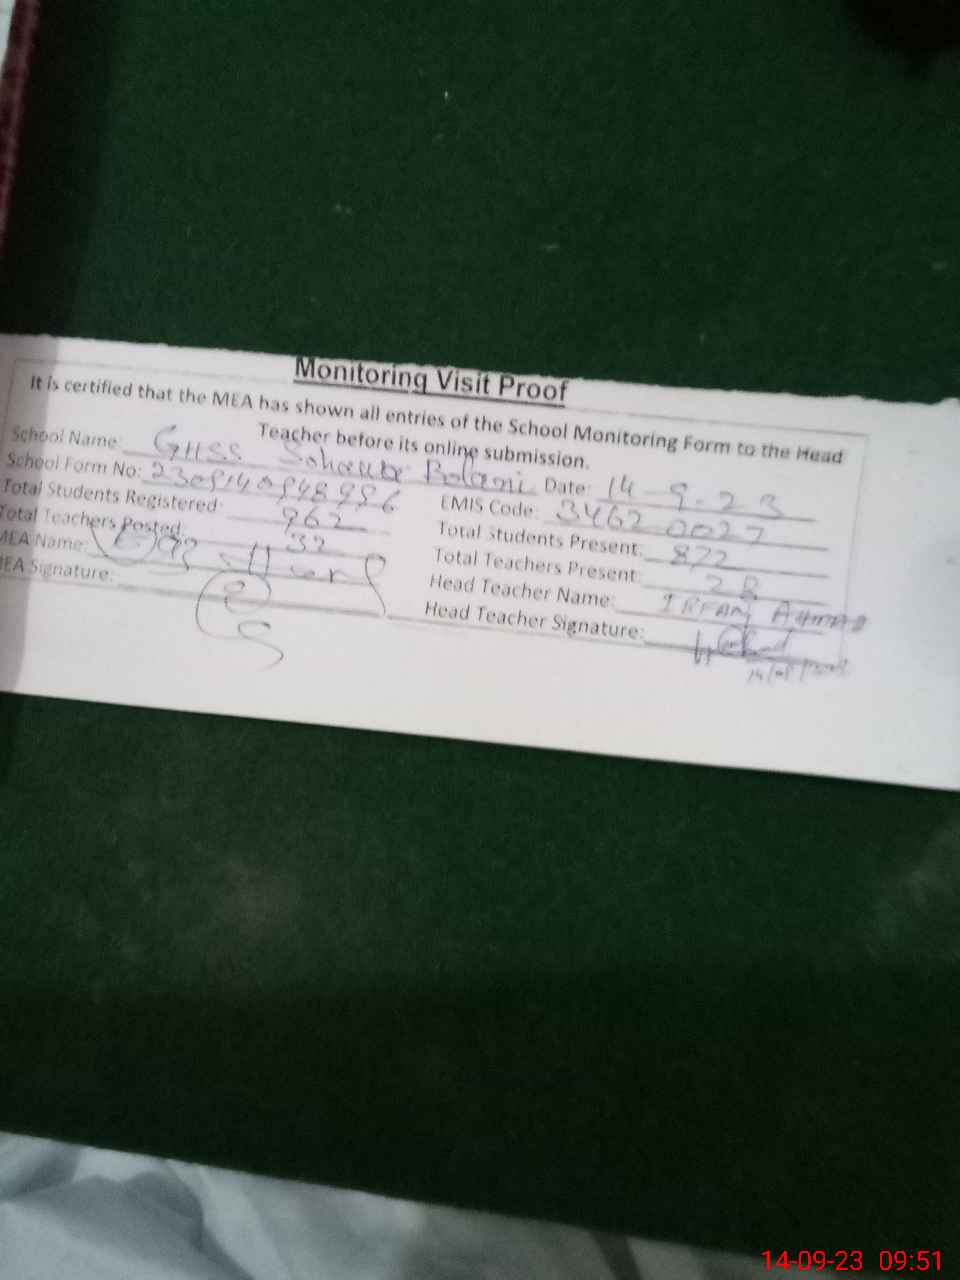 Monitoring Visit Proof
It is certified that the MEA has shown all entries of the School Monitoring Form to the Head
Teacher before its online submission.
School Name: GHSS Bolani Date: 14-9-23
School Form No: EMIS Code: 34620027
Total Students Registered: 962 Total Students Present: 872
Total Teachers Posted: 32 Total Teachers Present: 28
MEA Name: Head Teacher Name: IRFAN AHMAD
MEA Signature: Head Teacher Signature:
14-09-23 09:51